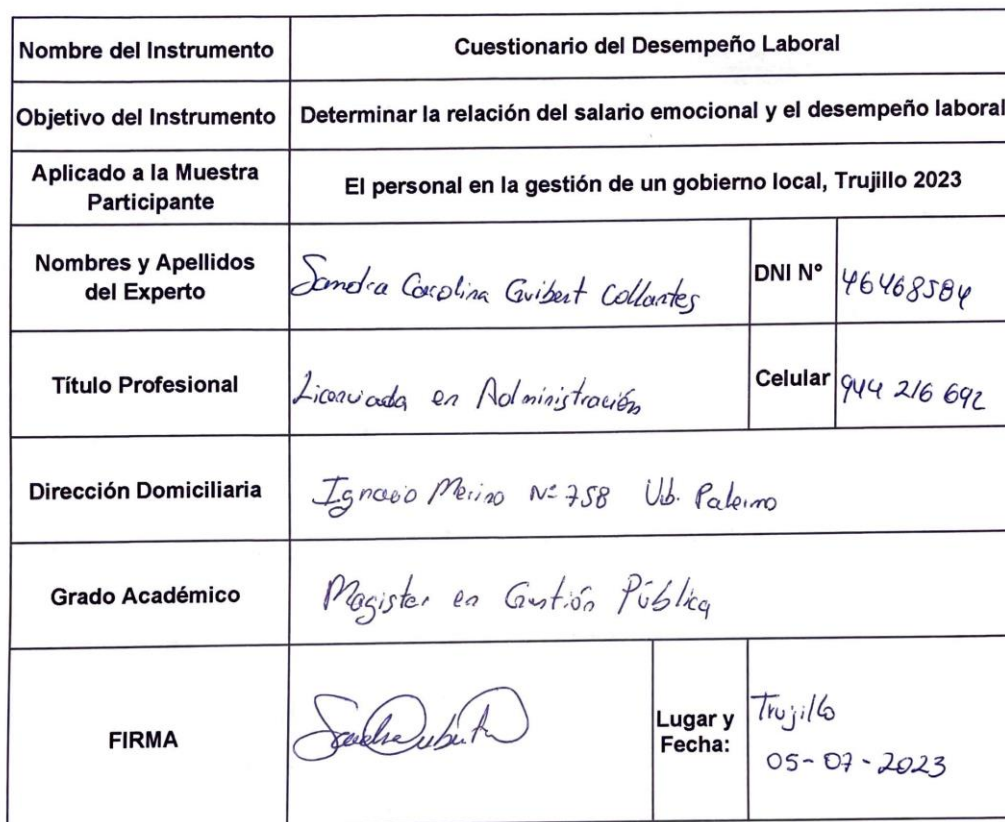 Nombre del Instrumento
Cuestionario del Desempeño Laboral
Objetivo del Instrumento
Determinar la relación del salario emocional y el desempeño laboral
Aplicado a la Muestra
Participante
El personal en la gestión de un gobierno local, Trujillo 2023
Nombres y Apellidos
del Experto
Sandra Carolina Guibert Collantes
DNI N°
46468584
Título Profesional
Licenciada en Administración
Celular
944 216 692
Dirección Domiciliaria
Ignacio Merino N= 758 Urb. Palermo
Grado Académico
Magister en Gestión Pública
FIRMA
Lugar y
Fecha:
Trujillo
05-07-2023